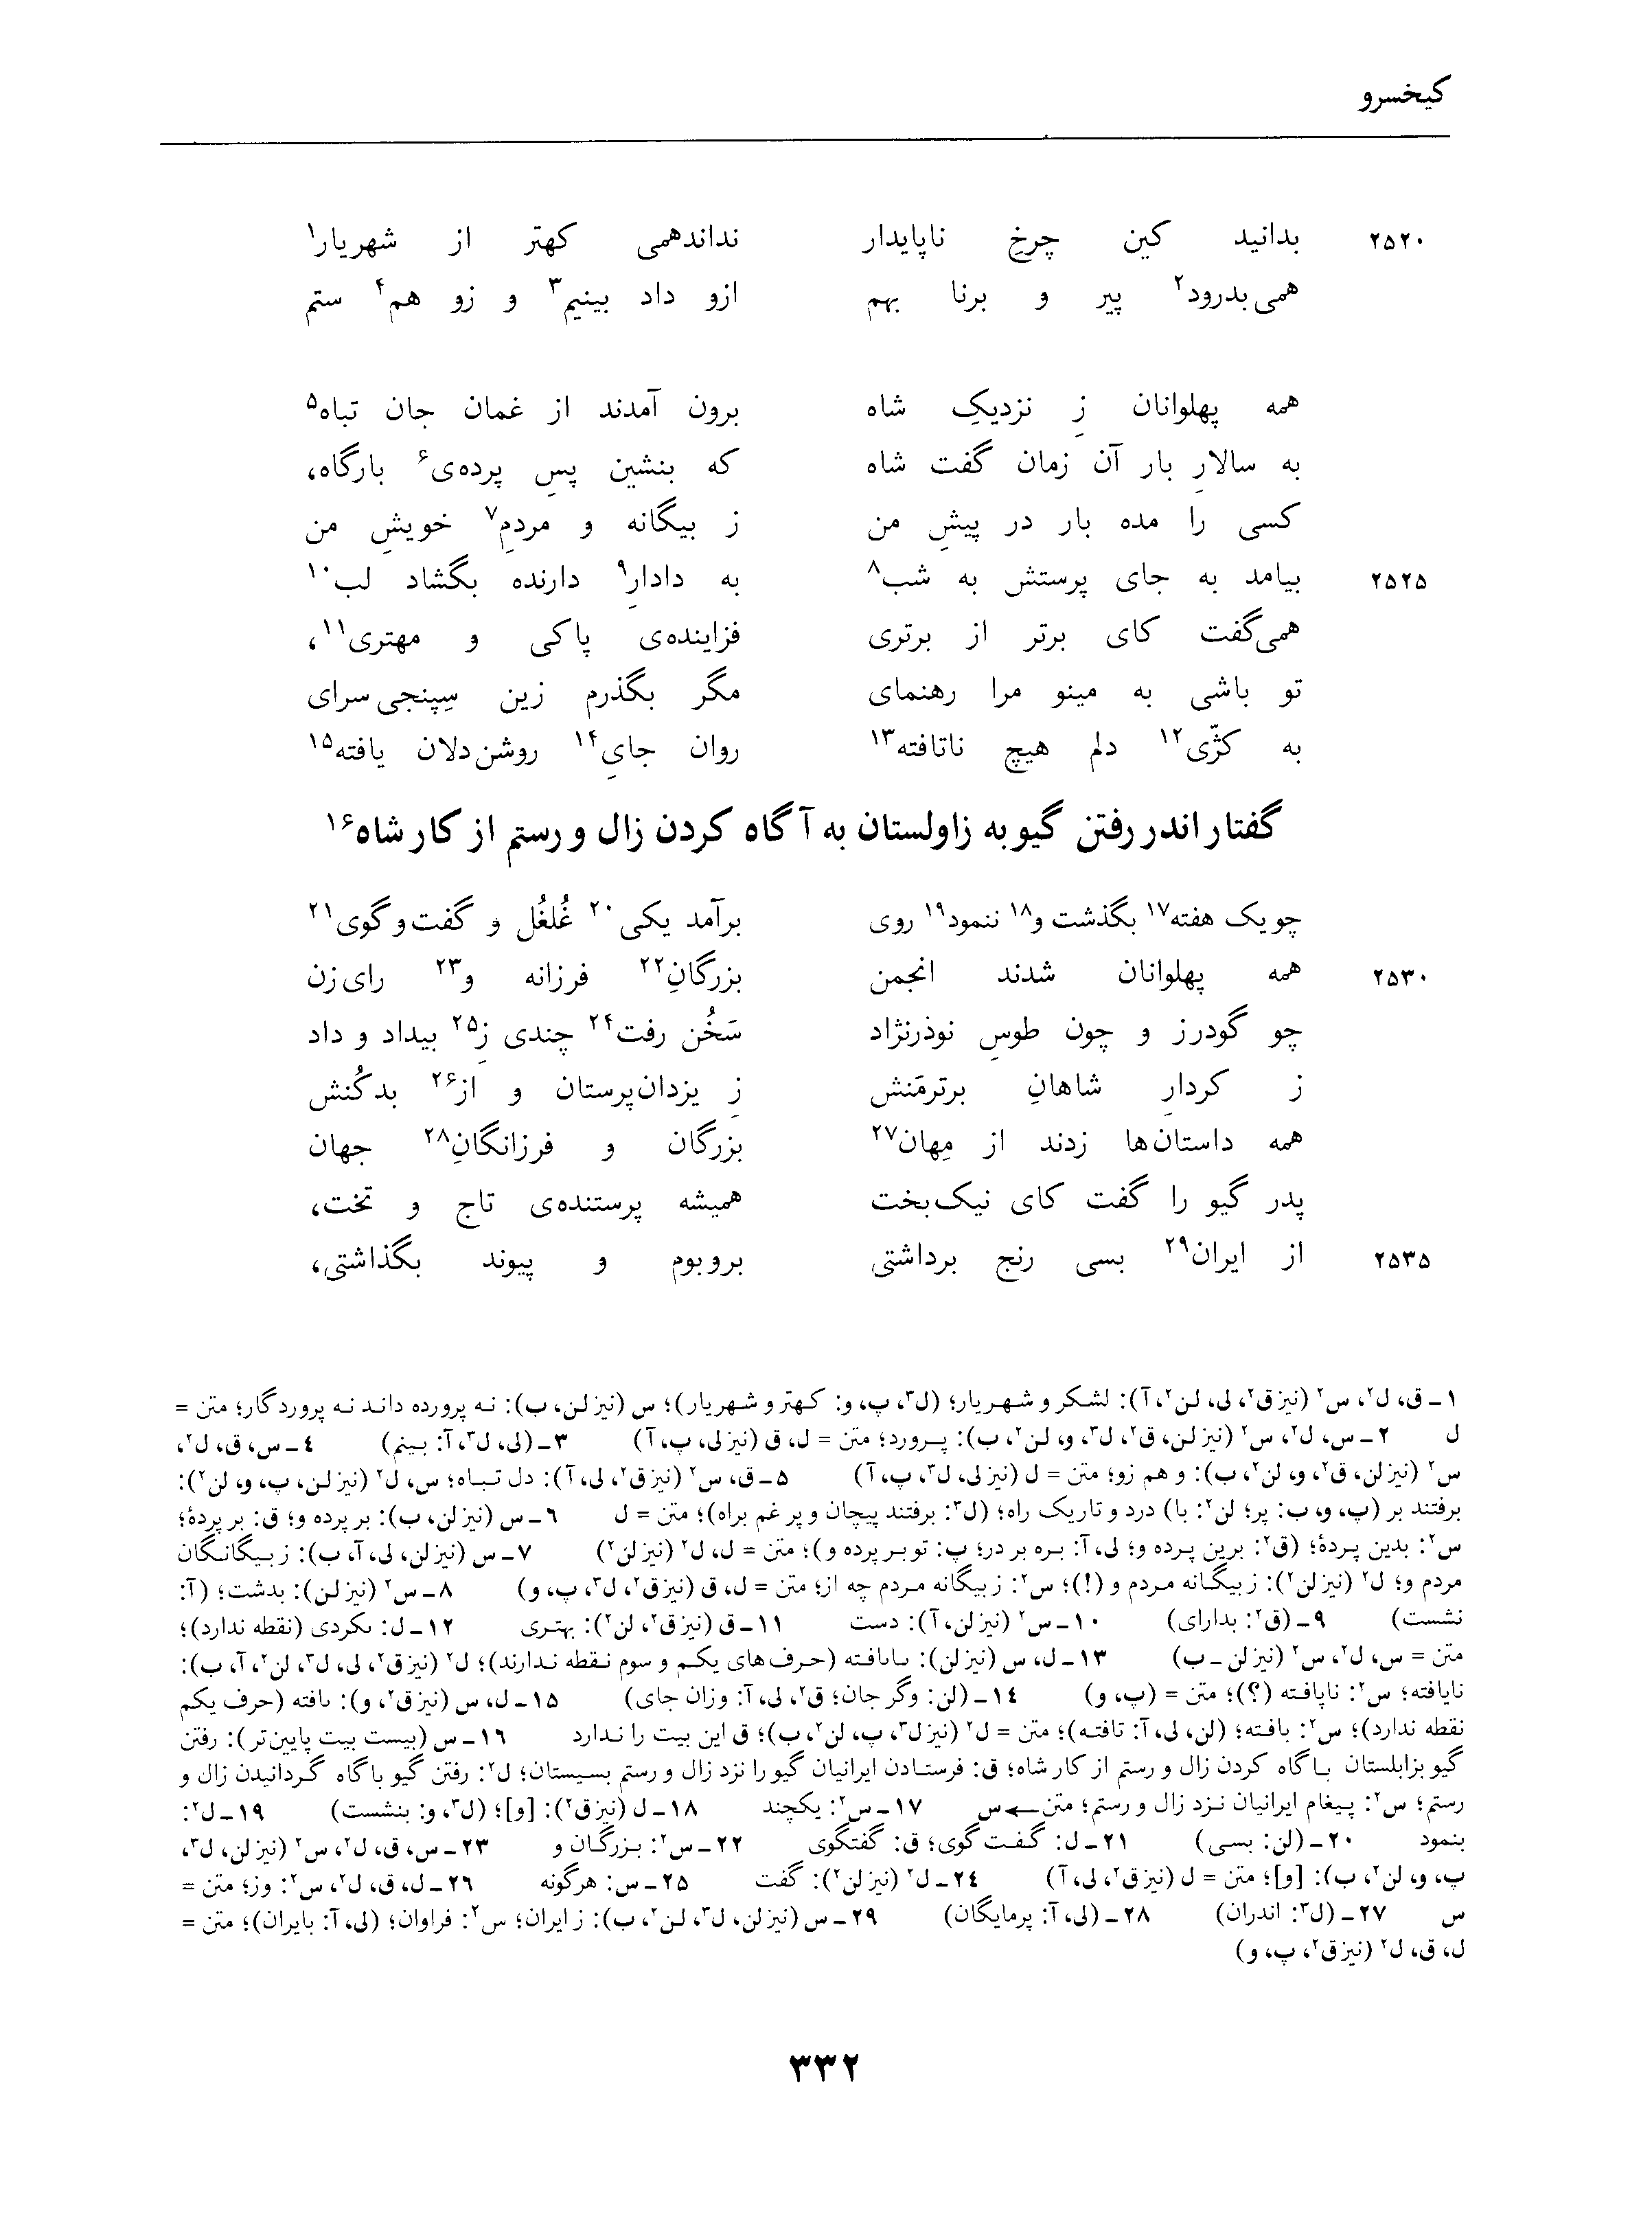 کیخسرو
۲۵۲۰ بدانید کین چرخِ ناپایدار نداندهمی کهتر از شهریار۱
همی‌بدرود۲ پیر و برنا بهم ازو داد بینیم۳ و زو هم۴ ستم
همه پهلوانان زِ نزدیکِ شاه برون آمدند از غمان جان تباه۵
به سالارِ بار آن زمان گفت شاه که بنشین پسِ پرده‌ی۶ بارگاه،
کسی را مده بار در پیشِ من ز بیگانه و مردمِ۷ خویشِ من
۲۵۲۵ بیامد به جای پرستش به شب۸ به دادارِ۹ دارنده بگشاد لب۱۰
همی‌گفت کای برتر از برتری فزاینده‌ی پاکی و مهتری۱۱،
تو باشی به مینو مرا رهنمای مگر بگذرم زین سِپنجی‌سرای
به کژّی۱۲ دلم هیچ ناتافته۱۳ روان جایِ۱۴ روشن‌دلان یافته۱۵
گفتار اندر رفتن گیو به زاولستان به آگاه کردن زال و رستم از کار شاه۱۶
چو یک هفته۱۷ بگذشت و۱۸ ننمود۱۹ روی برآمد یکی۲۰ غُلغُل و گفت‌وگوی۲۱
۲۵۳۰ همه پهلوانان شدند انجمن بزرگانِ۲۲ فرزانه و۲۳ رای‌زن
چو گودرز و چون طوسِ نوذرنژاد سَخُن رفت۲۴ چندی زِ۲۵ بیداد و داد
ز کردارِ شاهانِ برترمَنش زِ یزدان‌پرستان و از۲۶ بدکُنش
همه داستان‌ها زدند از مِهان۲۷ بزرگان و فرزانگانِ۲۸ جهان
پدر گیو را گفت کای نیک‌بخت همیشه پرستنده‌ی تاج و تخت،
۲۵۳۵ از ایران۲۹ بسی رنج برداشتی بروبوم و پیوند بگذاشتی،
۱ـ ق، ل۲، س۲ (نیز ق۲، لی، لن۲، آ): لشکر و شهریار؛ (ل۳، پ، و: کهتر و شهریار)؛ س (نیز لن، ب): نه پرورده داند نه پروردگار؛ متن =
ل ۲ـ س، ل۲، س۲ (نیز لن، ق۲، ل۳، و، لن۲، ب): پرورد؛ متن = ل، ق (نیز لی، پ، آ) ۳ـ (لی، ل۳، آ: بینم) ۴ـ س، ق، ل۲،
س۲ (نیز لن، ق۲، و، لن۲، ب): و هم زو؛ متن = ل (نیز لی، ل۳، پ، آ) ۵ـ ق، س۲ (نیز ق۲، لی، آ): دل تباه؛ س، ل۲ (نیز لن، پ، و، لن۲):
برفتند بر (پ، و، ب: پر؛ لن۲: با) درد و تاریک راه؛ (ل۳: برفتند پیچان و پر غم براه)؛ متن = ل ۶ـ س (نیز لن، ب): بر پرده و؛ ق: بر پردهٔ؛
س۲: بدین پردهٔ؛ (ق۲: برین پرده و؛ لی، آ: بره بر در؛ پ: تو بر پرده و)؛ متن = ل، ل۲ (نیز لن۲) ۷ـ س (نیز لن، لی، آ، ب): ز بیگانگان
مردم و؛ ل۲ (نیز لن۲): ز بیگانه مردم و (!)؛ س۲: ز بیگانه مردم چه از؛ متن = ل، ق (نیز ق۲، ل۳، پ، و) ۸ـ س۲ (نیز لن): بدشت؛ (آ:
نشست) ۹ـ (ق۲: بدارای) ۱۰ـ س۲ (نیز لن، آ): دست ۱۱ـ ق (نیز ق۲، لن۲): بهتری ۱۲ـ ل: ٮکردی (نقطه ندارد)؛
متن = س، ل۲، س۲ (نیز لن ـ ب) ۱۳ـ ل، س (نیز لن): ٮاٮافته (حرف‌های یکم و سوم نقطه ندارند)؛ ل۲ (نیز ق۲، لی، ل۳، لن۲، آ، ب):
نایافته؛ س۲: ناپافته (؟)؛ متن = (پ، و) ۱۴ـ (لن: وگر جان؛ ق۲، لی، آ: وزان جای) ۱۵ـ ل، س (نیز ق۲، و): ٮافته (حرف یکم
نقطه ندارد)؛ س۲: بافته؛ (لن، لی، آ: تافته)؛ متن = ل۲ (نیز ل۳، پ، لن۲، ب)؛ ق این بیت را ندارد ۱۶ـ س (بیست بیت پایین‌تر): رفتن
گیو بزابلستان بآگاه کردن زال و رستم از کار شاه؛ ق: فرستادن ایرانیان گیو را نزد زال و رستم بسیستان؛ ل۲: رفتن گیو باگاه گردانیدن زال و
رستم؛ س۲: پیغام ایرانیان نزد زال و رستم؛ متن ← س ۱۷ـ س۲: یکچند ۱۸ـ ل (نیز ق۲): [و]؛ (ل۳، و: بنشست) ۱۹ـ ل۲:
بنمود ۲۰ـ (لن: بسی) ۲۱ـ ل: گفت گوی؛ ق: گفتگوی ۲۲ـ س۲: بزرگان و ۲۳ـ س، ق، ل۲، س۲ (نیز لن، ل۳،
پ، و، لن۲، ب): [و]؛ متن = ل (نیز ق۲، لی، آ) ۲۴ـ ل۲ (نیز لن۲): گفت ۲۵ـ س: هرگونه ۲۶ـ ل، ق، ل۲، س۲: وز؛ متن =
س ۲۷ـ (ل۳: اندران) ۲۸ـ (لی، آ: پرمایگان) ۲۹ـ س (نیز لن، ل۳، لن۲، ب): ز ایران؛ س۲: فراوان؛ (لی، آ: بایران)؛ متن =
ل، ق، ل۲ (نیز ق۲، پ، و)
۳۳۲